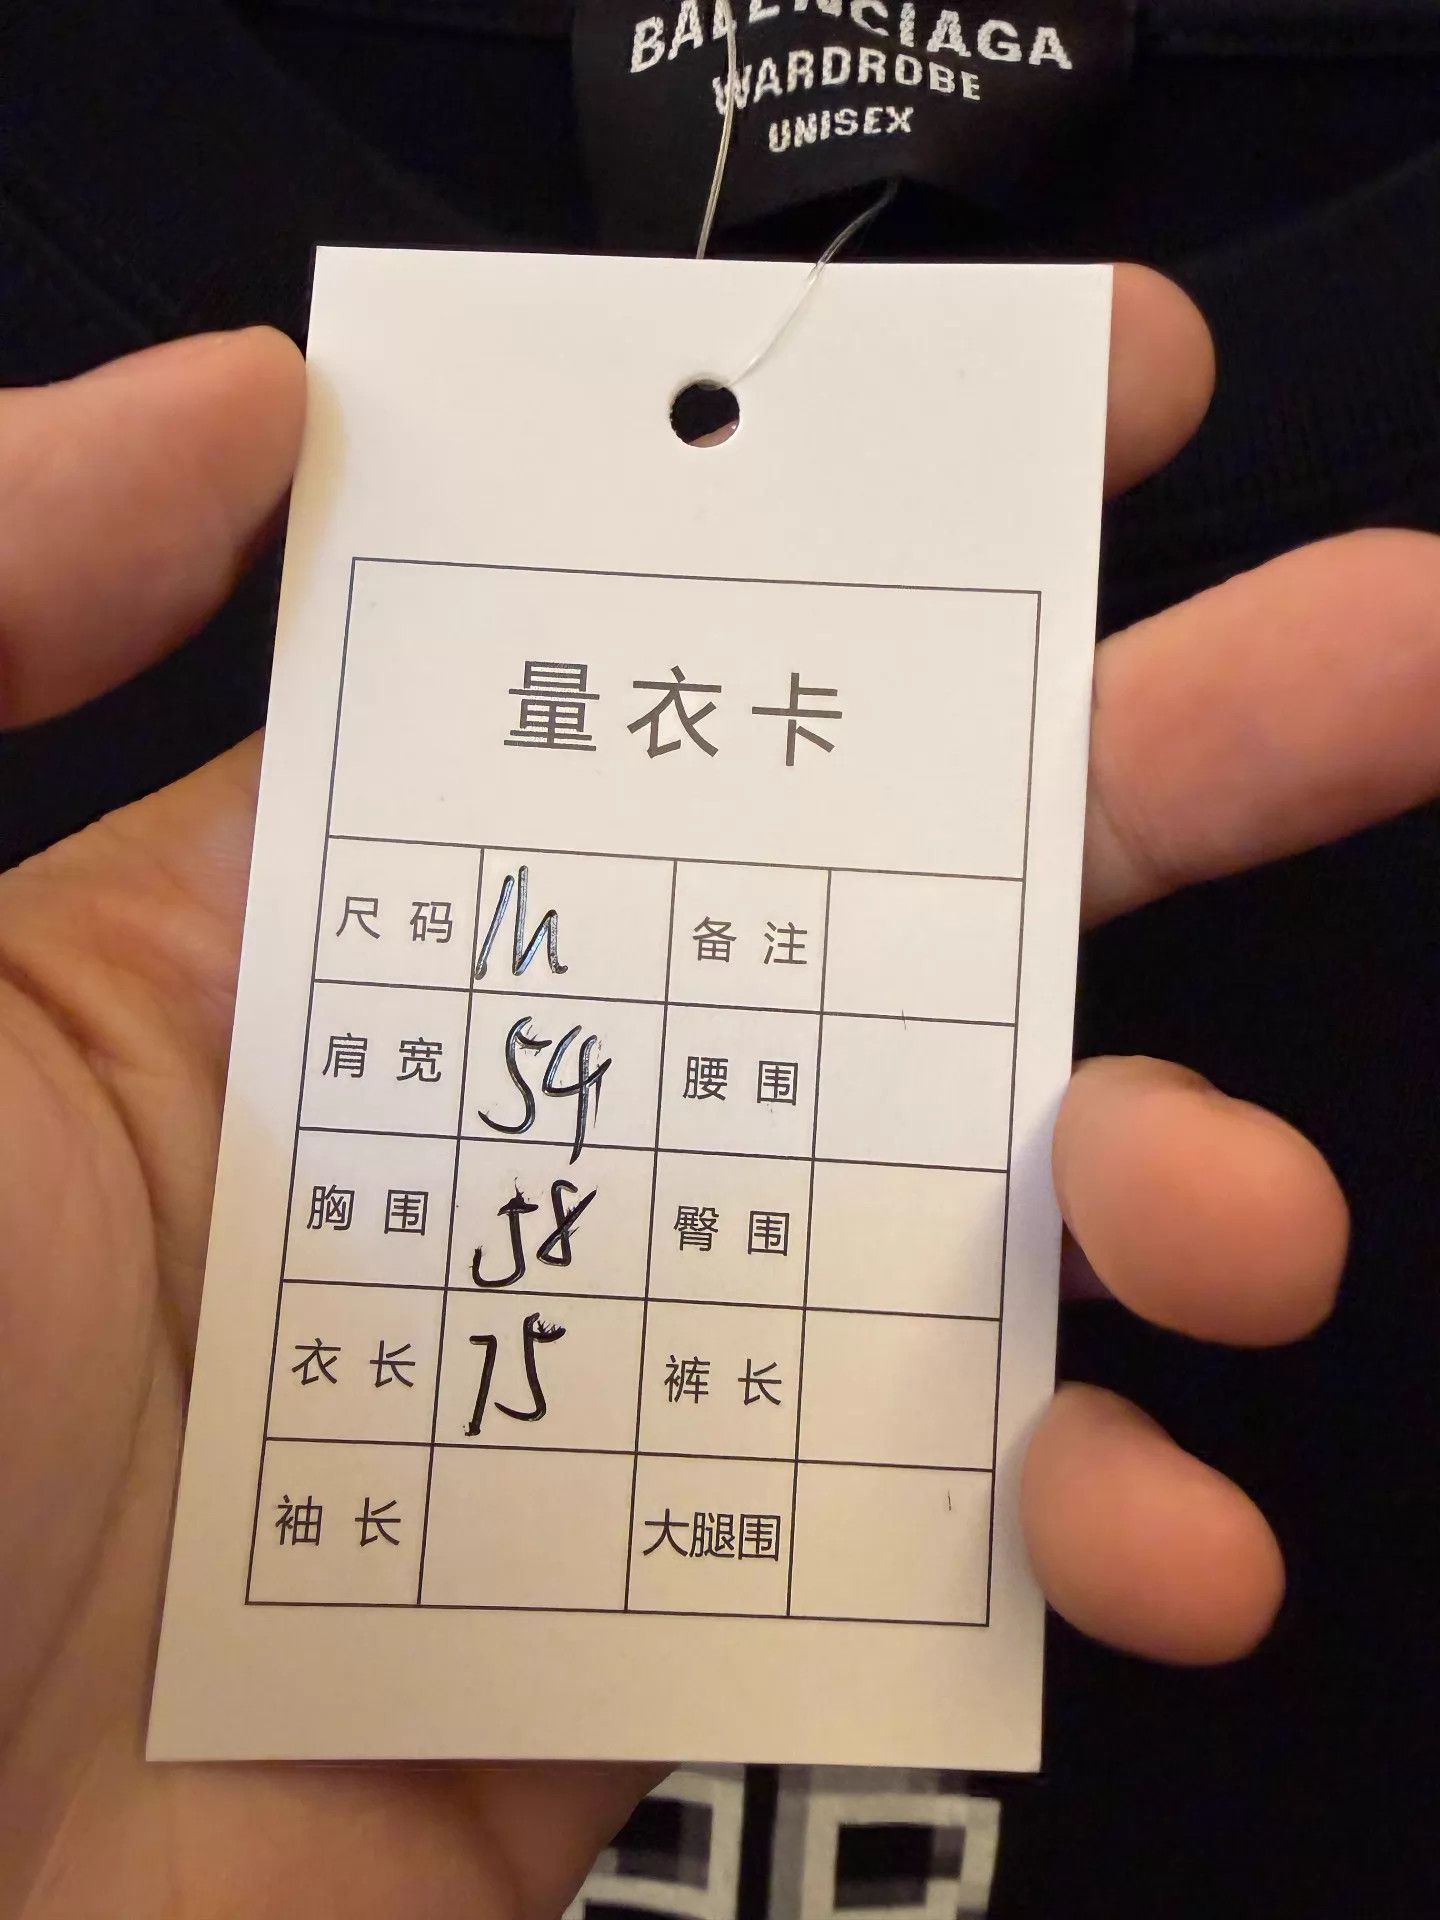 BALENCIAGA
WARDROBE
UNISEX
量衣卡
尺码 M 备注
肩宽 54 腰围
胸围 58 臀围
衣长 75 裤长
袖长 大腿围